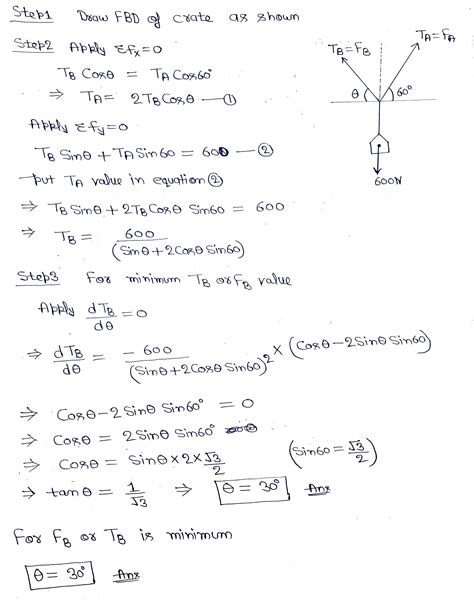 Step1 Draw FBD of crate as shown
Step2 Apply Σfx=0
TB Cosθ = TA Cos60°
⇒ TA = 2TB Cosθ —①
Apply Σfy=0
TB Sinθ + TA Sin60 = 600 —②
put TA value in equation ②
⇒ TB Sinθ + 2TB Cosθ Sin60 = 600
⇒ TB = 600/(Sinθ + 2Cosθ Sin60)
TB = FB
TA = FA
θ 60°
600N
Step3 For minimum TB or FB value
Apply dTB/dθ = 0
⇒ dTB/dθ = -600/(Sinθ + 2Cosθ Sin60)² × (Cosθ - 2Sinθ Sin60)
⇒ Cosθ - 2Sinθ Sin60° = 0
⇒ Cosθ = 2Sinθ Sin60°
⇒ Cosθ = Sinθ × 2 × √3/2 (Sin60 = √3/2)
⇒ tanθ = 1/√3 ⇒ θ = 30° Ans
For FB or TB is minimum
θ = 30° Ans